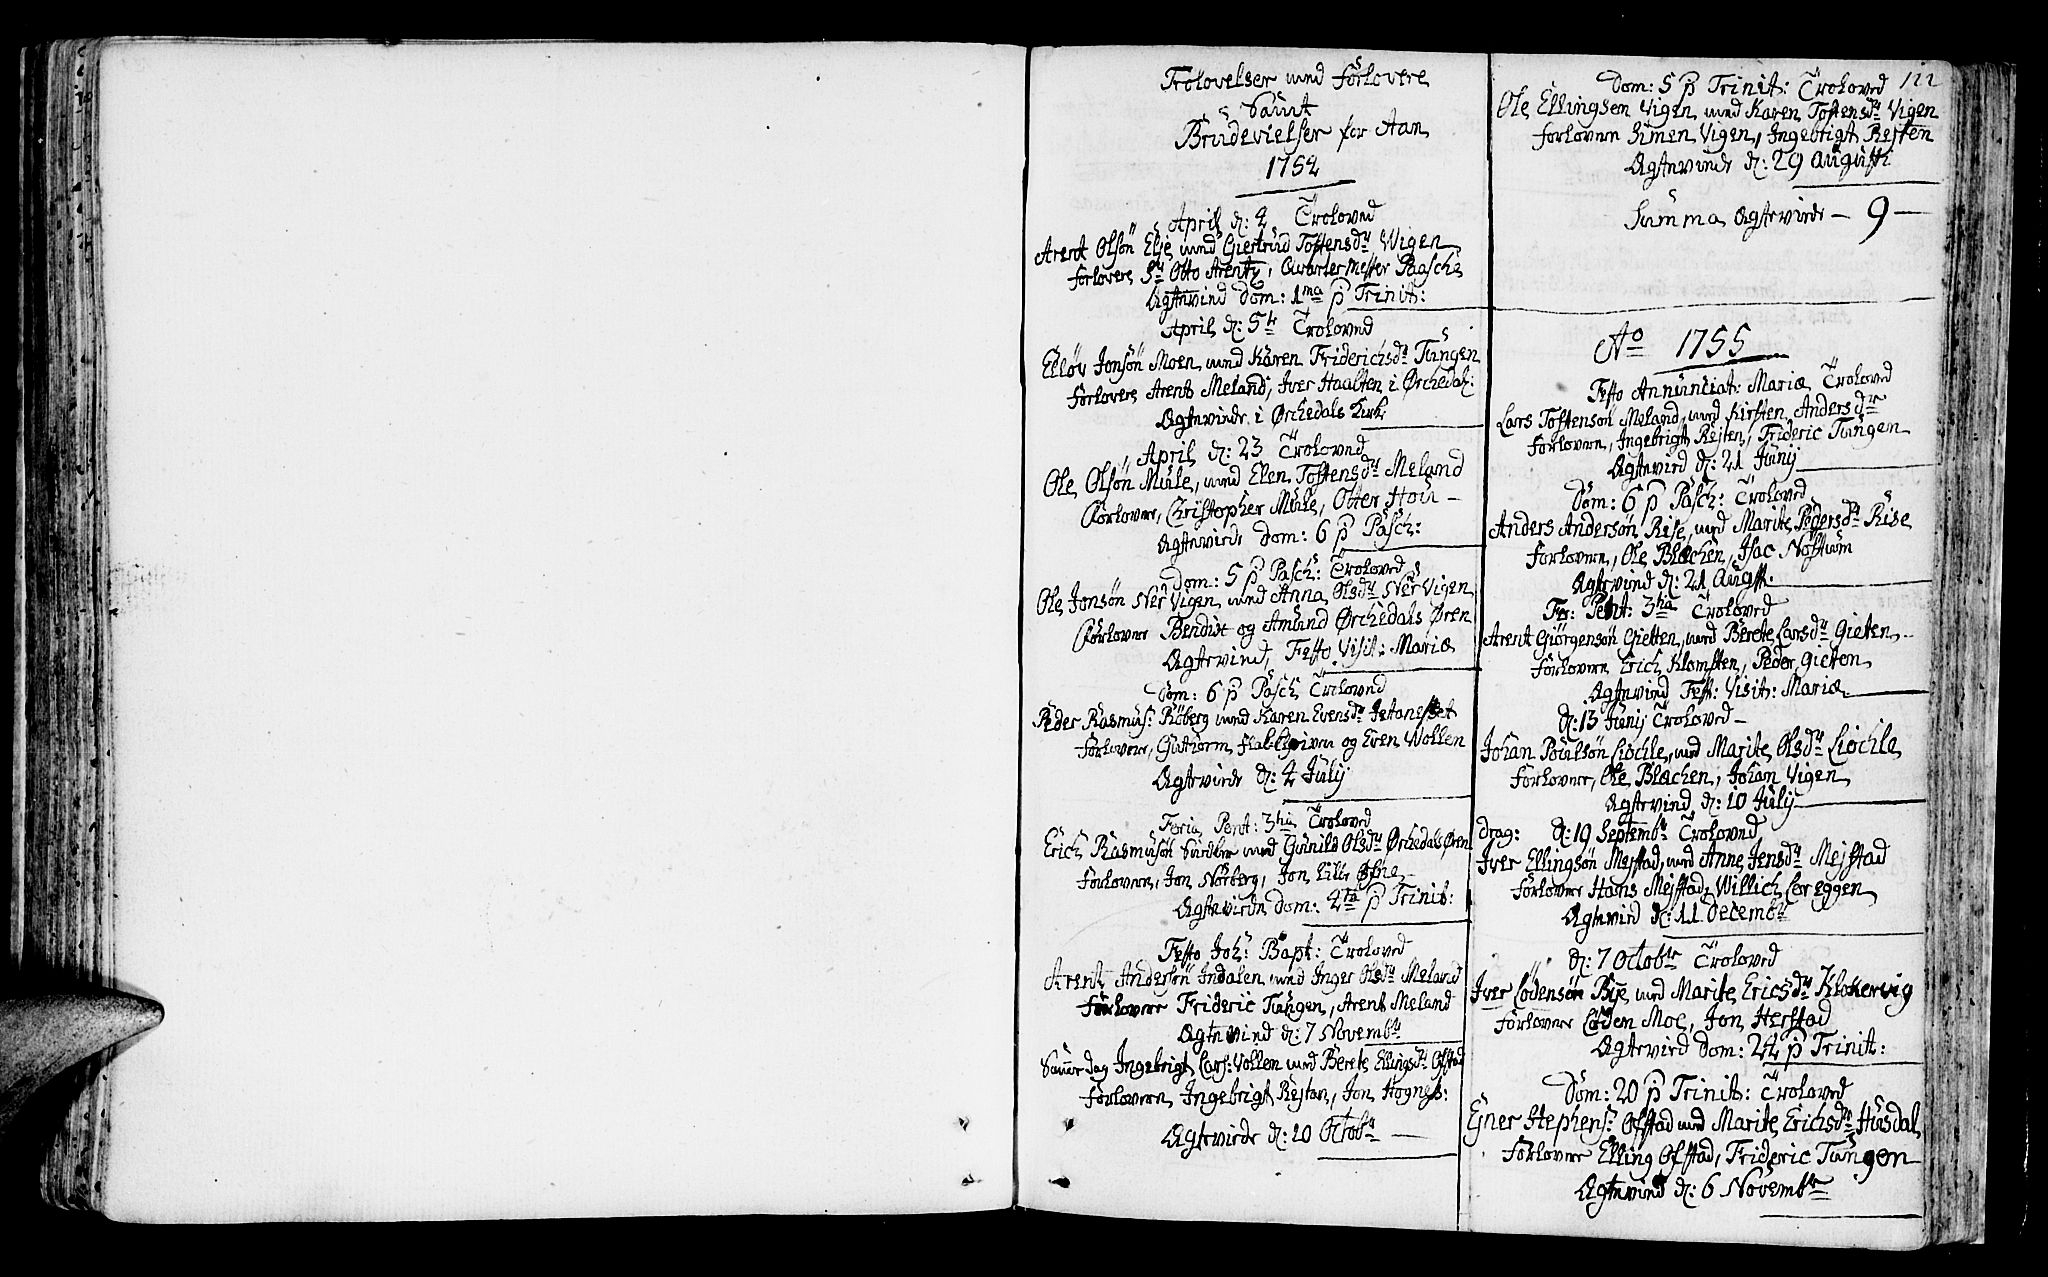 Trolovelser med forlovere
Samt
Brudevielser for Aan
1754
April d: 4 Troloved
Arent Olsön Elje med Giertrud Toftensdr Wigen
forlovere Sr Otto Arentz, Qvartermester Paasche
Ægtevied Dom: 1ma p Trinit:
April d: 5te Troloved
Elløv Jonsön Moen med Karen Friderichsdr Tungen
forlovere Arent Meland, Iver Haalten i Ørchedal:
Ægteviede i Ørchedals Kirk
April d: 23 Troloved
Ole Olsön Mule, med Elen Toftensdr Meland
forlovere, Christopher Mule, Otter Hou
Ægteviede Dom: 6 p Pasch:
Dom: 5 p Pasch: Troloved
Ole Jonsön Ner Vigen med Anna Olsdr Ner Vigen
forlovere Bendixt og Amund Ørchedals Øren
Ægtevied, Festo Visit: Mariæ
Dom: 6 p Pasch Troloved
Peder Rasmus: Röberg med Karen Evensdr
forlovere, Guttorm og Even Wollen
Ægteviede d: 4 July
Feria Pent: 3tia Troloved
Erich Rasmusön med Gunild Olsdr Ørchedals Øren
forlovere, Jon Nörberg, Jon
Ægteviede Dom: p Trinit:
Festo Joh: Bapt: Troloved
Arent Andersön Indalen med Inger Olsdr Meland
forlovere Frideric Tungen, Arent Meland
Ægtevied d: 7 Novembr
Samme Dag Ingebrigt Lars: Vollen med Berete Ellingsdr Ofstad
forlovere Ingebrigt Rejtan, Jon Hognes:
Ægteviede d: 20 Octobr
122
Dom: 5 p Trinit: Troloved
Ole Ellingsen Vigen med Karen Toftensdr Vigen
forlovere Simen Vigen, Ingebrigt Rejten
Ægteviede d: 29 Augusti
Summa Ægteviede — 9 —
Ao 1755
Festo Annunciat: Mariæ Troloved
Lars Toftensön Meland, med Kirsten Andersdr
forlovere, Ingebrigt Rejten, Frideric Tungen
Ægtevied d: 21 Junij
Dom: 6 p Pasch: Troloved
Anders Andersön Rise, med Marite Pedersdr Rise
forlovere, Ole Blachen, Isac Nöstum
Ægtevied d: 21 Augst.
Fe: Pent: 3tia Troloved
Arent Giörgensön Gietten, med Berete Larsdr Gieten
forlovere Erich Klomsten, Peder Gieten
Ægtevied Fest: Visit: Mariæ
d: 13 Junij Troloved
Johan Poulsön Liöchle, med Marite Olsdr Liöchle
forlovere, Ole Blachen, Johan Vigen
Ægtevied d: 10 July
drag: d: 19 Septembr Troloved
Iver Ellingsön Mejstad, med Anne Jensdr Mejstad
forlovere Hans Mejstad, Willich Lereggen
Ægtevied d: 11 Decembr
d: 7 Octobr Troloved
Iver Lödensön Bye med Marite Ericsdr Klokervig
forlovere Löden Moe, Jon Herstad
Ægtevied Dom: 24 p Trinit:
Dom: 20 p Trinit: Troloved
Ejner Stephens: Ofstad med Marite Erichsdr Husdal
forlovere Elling Ofstad, Frideric Tungen
Ægtevied d: 6 Novembr